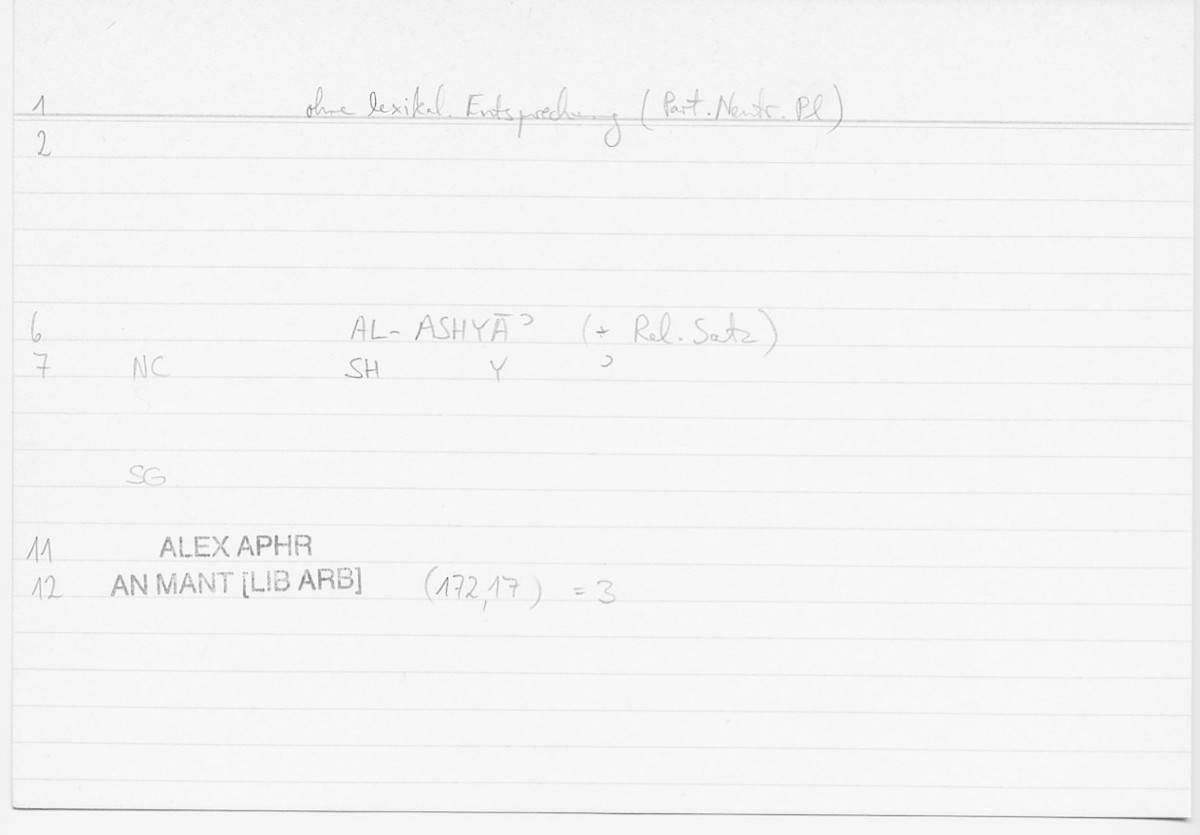 1 ohne lexikal. Entsprechung (Part. Neutr. Pl)
2
6 AL- ASHYĀʾ (+ Rel. Satz)
7 NC SH Y ʾ
SG
11 ALEX APHR
12 AN MANT [LIB ARB] (172,17) = 3